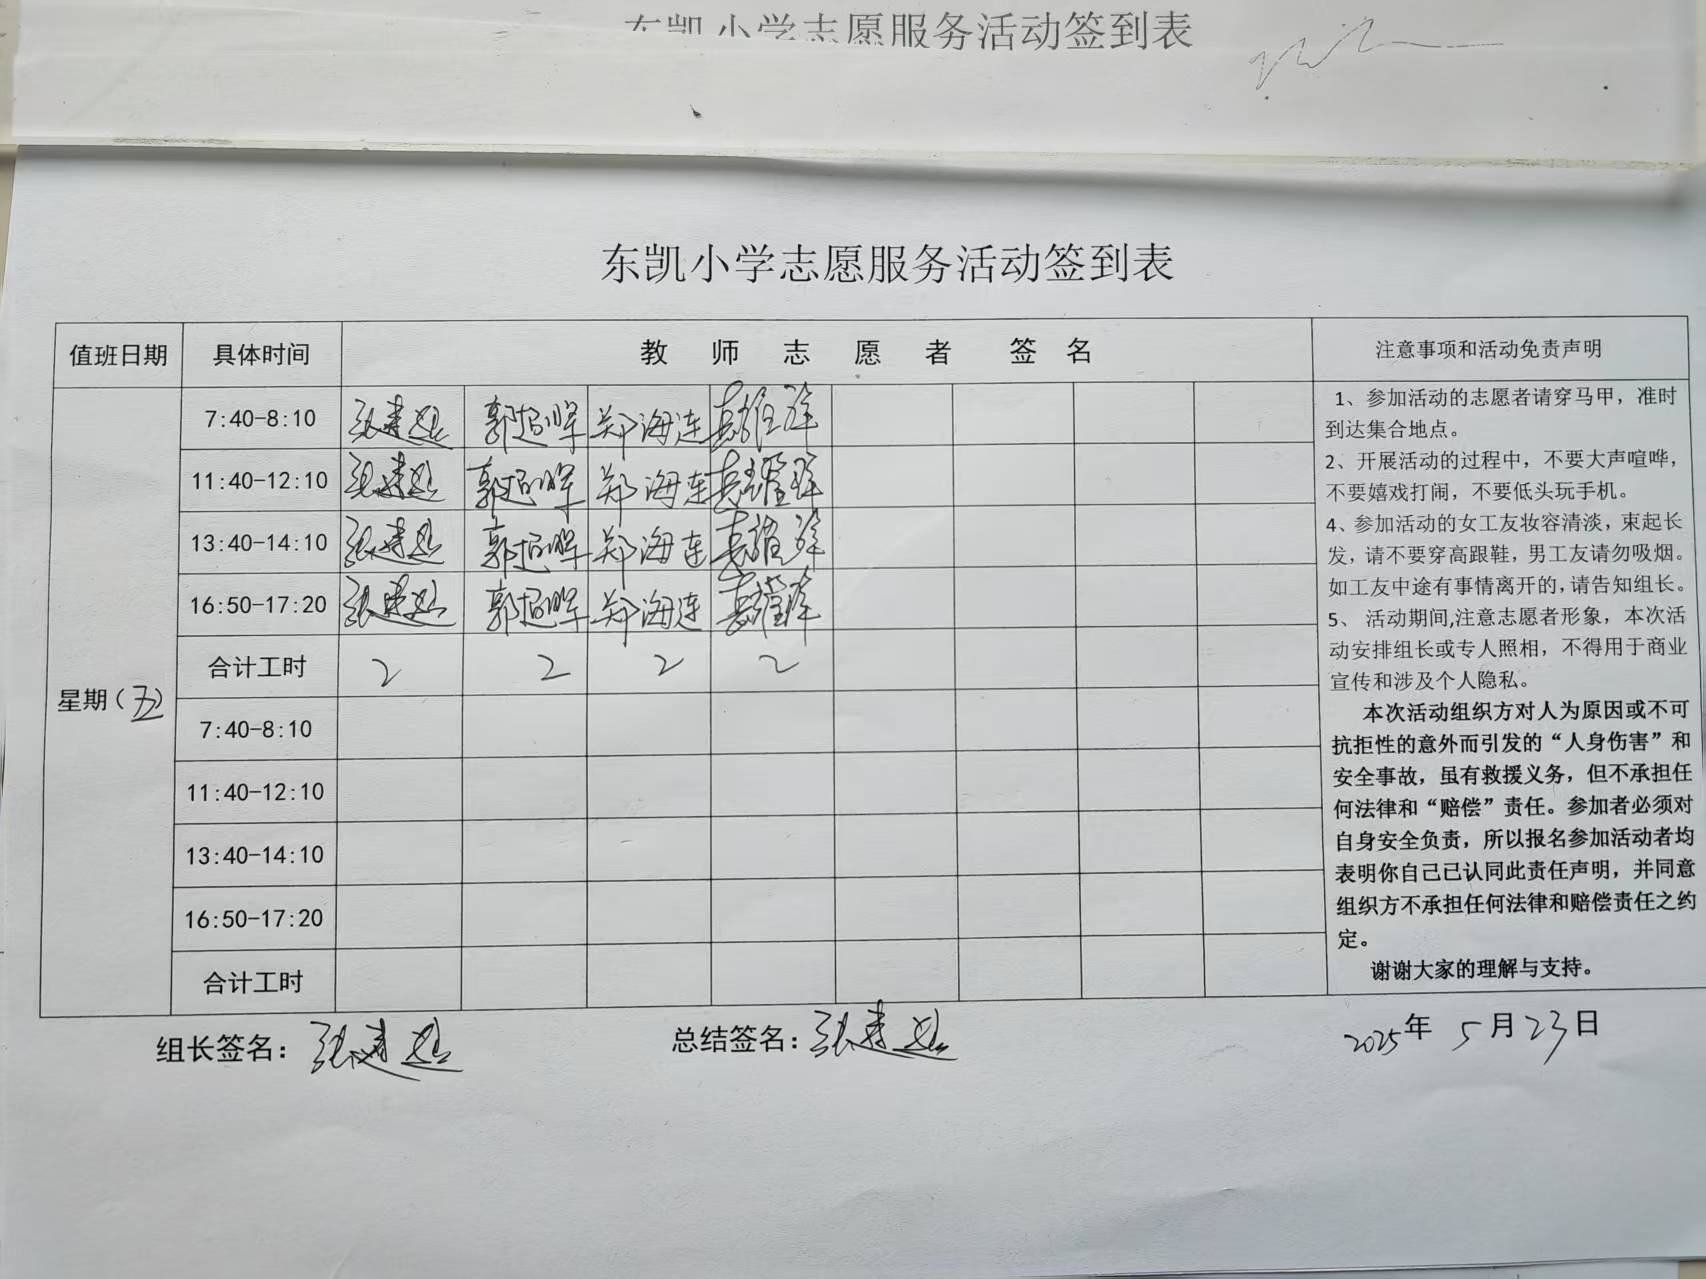 东凯小学志愿服务活动签到表
东凯小学志愿服务活动签到表
值班日期 具体时间 教师志愿者签名 注意事项和活动免责声明
7:40-8:10 郭超晖 郑海连
11:40-12:10 郭超晖 郑海连
13:40-14:10 郭超晖 郑海连
16:50-17:20 郭超晖 郑海连
合计工时 2 2 2 2
星期(五)
7:40-8:10
11:40-12:10
13:40-14:10
16:50-17:20
合计工时
1、参加活动的志愿者请穿马甲，准时
到达集合地点。
2、开展活动的过程中，不要大声喧哗，
不要嬉戏打闹，不要低头玩手机。
4、参加活动的女工友妆容清淡，束起长
发，请不要穿高跟鞋，男工友请勿吸烟。
如工友中途有事情离开的，请告知组长。
5、 活动期间,注意志愿者形象，本次活
动安排组长或专人照相，不得用于商业
宣传和涉及个人隐私。
本次活动组织方对人为原因或不可
抗拒性的意外而引发的“人身伤害”和
安全事故，虽有救援义务，但不承担任
何法律和“赔偿”责任。参加者必须对
自身安全负责，所以报名参加活动者均
表明你自己已认同此责任声明，并同意
组织方不承担任何法律和赔偿责任之约
定。
谢谢大家的理解与支持。
组长签名： 总结签名： 2025年 5月23日